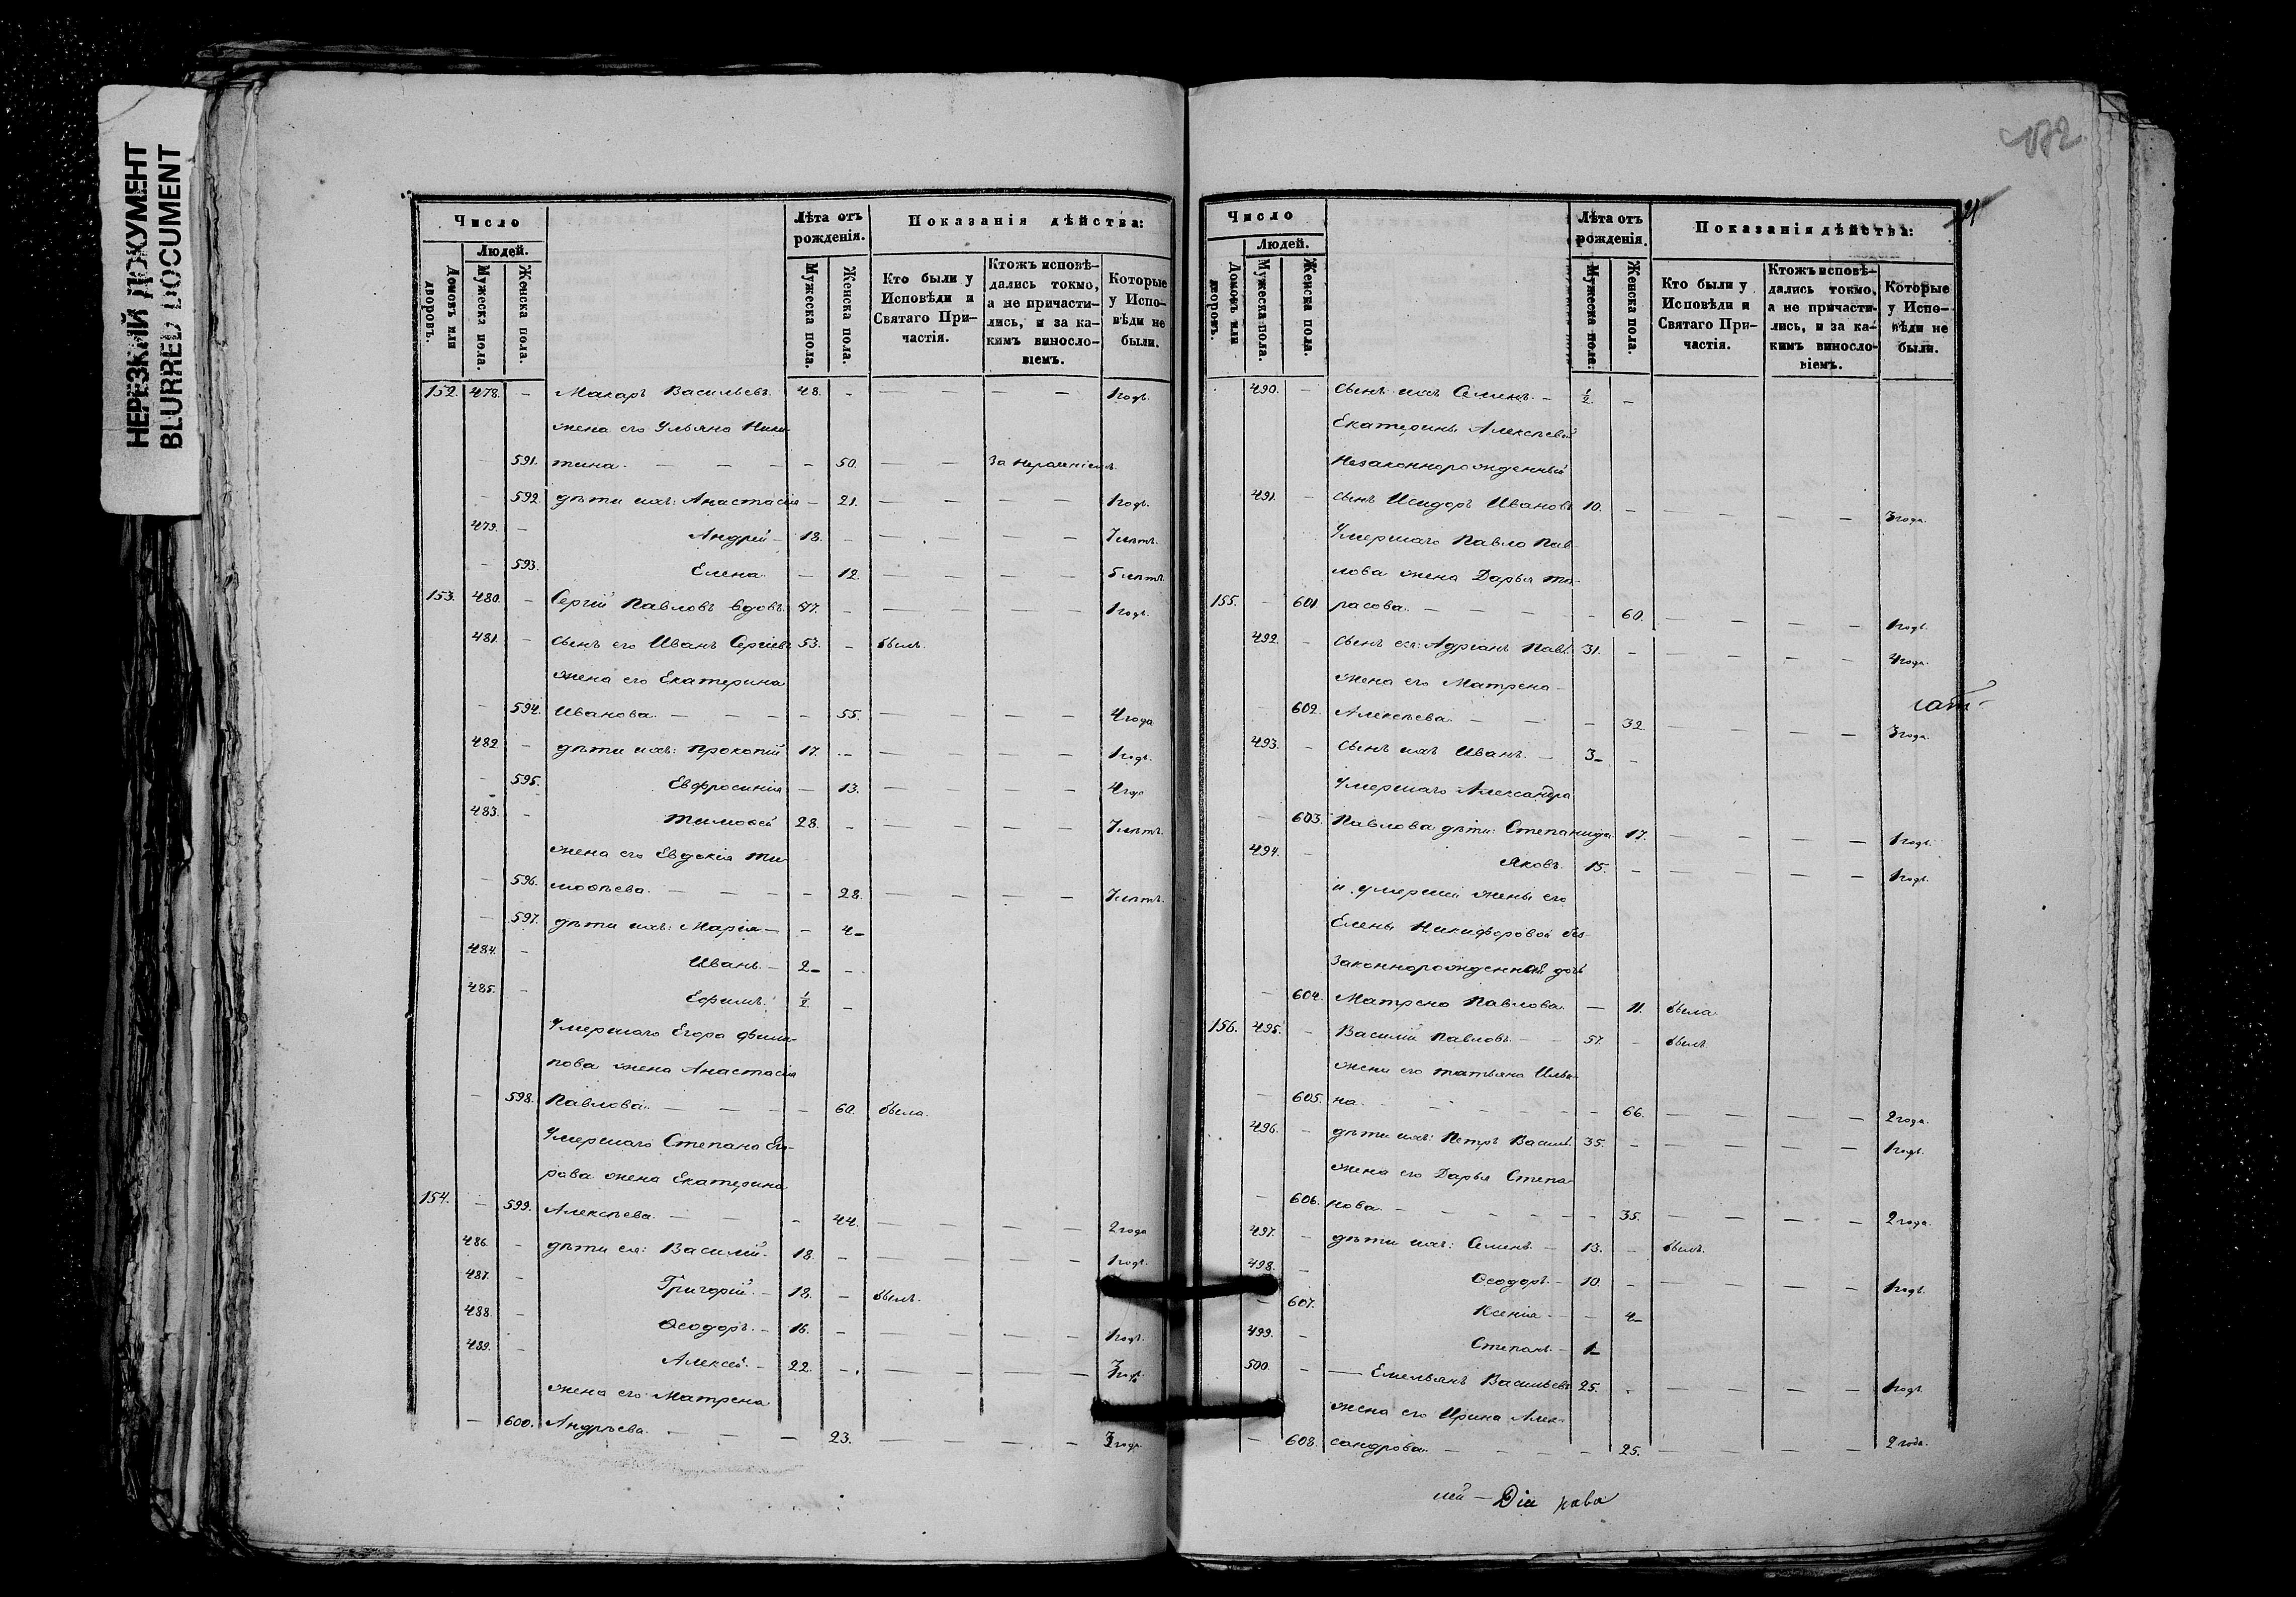 НЕРЕЗКИЙ ДОКУМЕНТ
BLURRED DOCUMENT
Число
Лѣта отъ рожденія.
Показанія дѣйства:
Людей.
Домовъ или дворовъ.
Мужеска пола.
Женска пола.
Мужеска пола.
Женска пола.
Кто были у Исповѣди и Святаго Причастія.
Ктожъ исповѣдались токмо, а не причастились, и за какимъ винословіемъ.
Которые у Исповѣди не были.
152. 478. — Макаръ Васильевъ 48. — — — — — 1 годъ.
жена его Ульяна Ники-
— 591. тина. — — — — 50. — — За нерашеніемъ
— 592. дѣти ихъ: Анастасія — 21. — — — — 1 годъ.
479. — Андрей — 18. — — — — — 7 лѣтъ.
— 593. Елена — 12. — — — — 5 лѣтъ.
153. 480. — Сергій Павловъ вдовъ 77. — — — — — 1 годъ.
481. — сынъ его Иванъ Сергіевъ 53. — былъ.
жена его Екатерина
— 594. Иванова. — — — — 55. — — — — 4 года
482. — дѣти ихъ: Прокопій 17. — — — — — 1 годъ.
— 595. Евфросинія — 13. — — — — 4 года
483. — Тимоѳей 28. — — — — — 7 лѣтъ.
жена его Евдокія Ти-
— 596. моѳѣева. — — — — 28. — — — — 7 лѣтъ.
— 597. дѣти ихъ: Марія — — 4 —
484. — Иванъ. — 2 — —
485. — Ефимъ. ½ —
Умершаго Егора Фили-
пова жена Анастасія
— 598. Павлова. — — — — 60. была.
Умершаго Степана Его-
рова жена Екатерина
154. — 599. Алексѣева. — — — 44. — — — — 2 года
486. — дѣти ея: Василій. 18. — — — — — 1 годъ.
487. — Григорій. — 18. — былъ.
488. — Ѳеодоръ. — 16. — — — — — 1 годъ.
489. — Алексѣй. — 22. — — — —
жена его Матрена
— 600. Андрѣева. — — — 23. — — — —
172
Число
Лѣта отъ рожденія.
Показанія дѣйства:
Людей.
Домовъ или дворовъ.
Мужеска пола.
Женска пола.
Мужеска пола.
Женска пола.
Кто были у Исповѣди и Святаго Причастія.
Ктожъ исповѣдались токмо, а не причастились, и за какимъ винословіемъ.
Которые у Исповѣди не были.
490. — сынъ ихъ Семенъ — ½ —
Екатерины Алексѣевой
незаконнорожденный
491. — сынъ Исидоръ Ивановъ 10. — — — — — 3 года.
Умершаго Павла Пав-
лова жена Дарья Та-
155. — 601. расова. — — — — 60. — — — — 1 годъ.
492. — сынъ ея: Адріанъ Павл. 31. — — — — — 4 года.
жена его Матрена —
602. Алексѣева. — — — 32. — — — — 3 года.
493. — сынъ ихъ Иванъ. — 3 — —
Умершаго Александра
— 603. Павлова дѣти: Степанида 17. — — — — 1 годъ.
494. — Яковъ. 15. — — — — — 1 годъ.
и умершей жены его
Елены Никифоровой без-
законнорожденная дочь
— 604. Матрена Павлова. — 11. была.
156. 495. — Василій Павловъ. — 57. — былъ
жена его Татьяна Ильи-
— 605. на. — — — — — 66. — — — — 2 года.
496. — дѣти ихъ: Петръ Васил. 35. — — — — — 1 годъ.
жена его Дарья Степа-
— 606. нова. — — — — — 35. — — — — 2 года.
497. — дѣти ихъ: Семенъ — 13. — былъ.
498. — Ѳеодоръ. — 10. — — — — — 1 годъ.
— 607. Ксенія — — 4 —
499. — Степанъ. — 1 —
500. — — Емельянъ Васильевъ 25. — — — — — 1 годъ.
жена его Ирина Алек-
— 608. сандрова. — — — — 25. — — — — 2 года.